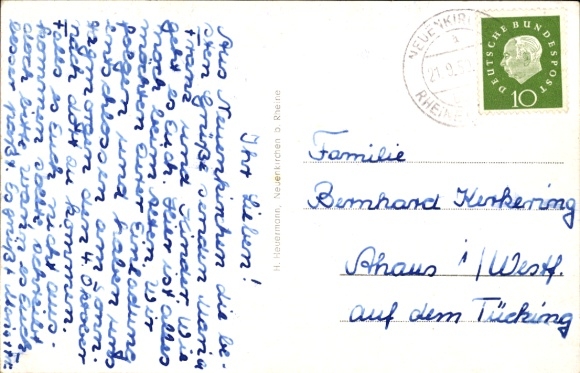 Ihr Lieben!
Aus Neuenkirchen die be-
sten Grüße senden Maria
Franz und Kinder. Wie
geht es Euch. Hier ist alles
noch beim alten. Wir
möchten Eurer Einladung
folgen und haben uns
entschlossen am Sonn-
tag den 4 Oktober
nach dort zu kommen.
Falls es Euch nicht aus-
kommen sollte schreibt
doch bitte wann es Euch
besser paßt. Es grüßt Maria
H. Heuermann, Neuenkirchen b. Rheine
NEUENKIRCHEN
21.9.
RHEINE
DEUTSCHE BUNDESPOST
10
Familie
Bernhard Kerkering
Ahaus i/Westf.
auf dem Tücking